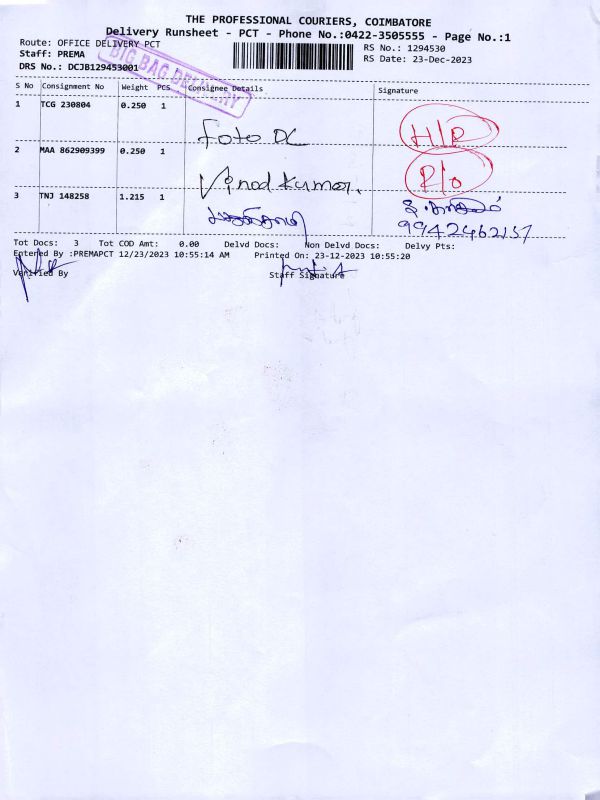 THE PROFESSIONAL COURIERS, COIMBATORE
Delivery Runsheet - PCT - Phone No.:0422-3505555 - Page No.:1
Route: OFFICE DELIVERY PCT
RS No.: 1294530
Staff: PREMA
RS Date: 23-Dec-2023
DRS No.: DCJB129453001
BIG BAG DELIVERY
S No Consignment No Weight PCS Consignee Details Signature
1 TCG 230804 0.250 1
Foto DC H/R
2 MAA 862909399 0.250 1
Vinod Kumar. R/o
3 TNJ 148258 1.215 1
9942462157
Tot Docs: 3 Tot COD Amt: 0.00 Delvd Docs: Non Delvd Docs: Delvy Pts:
Entered By :PREMAPCT 12/23/2023 10:55:14 AM Printed On: 23-12-2023 10:55:20
Verified By Staff Signature